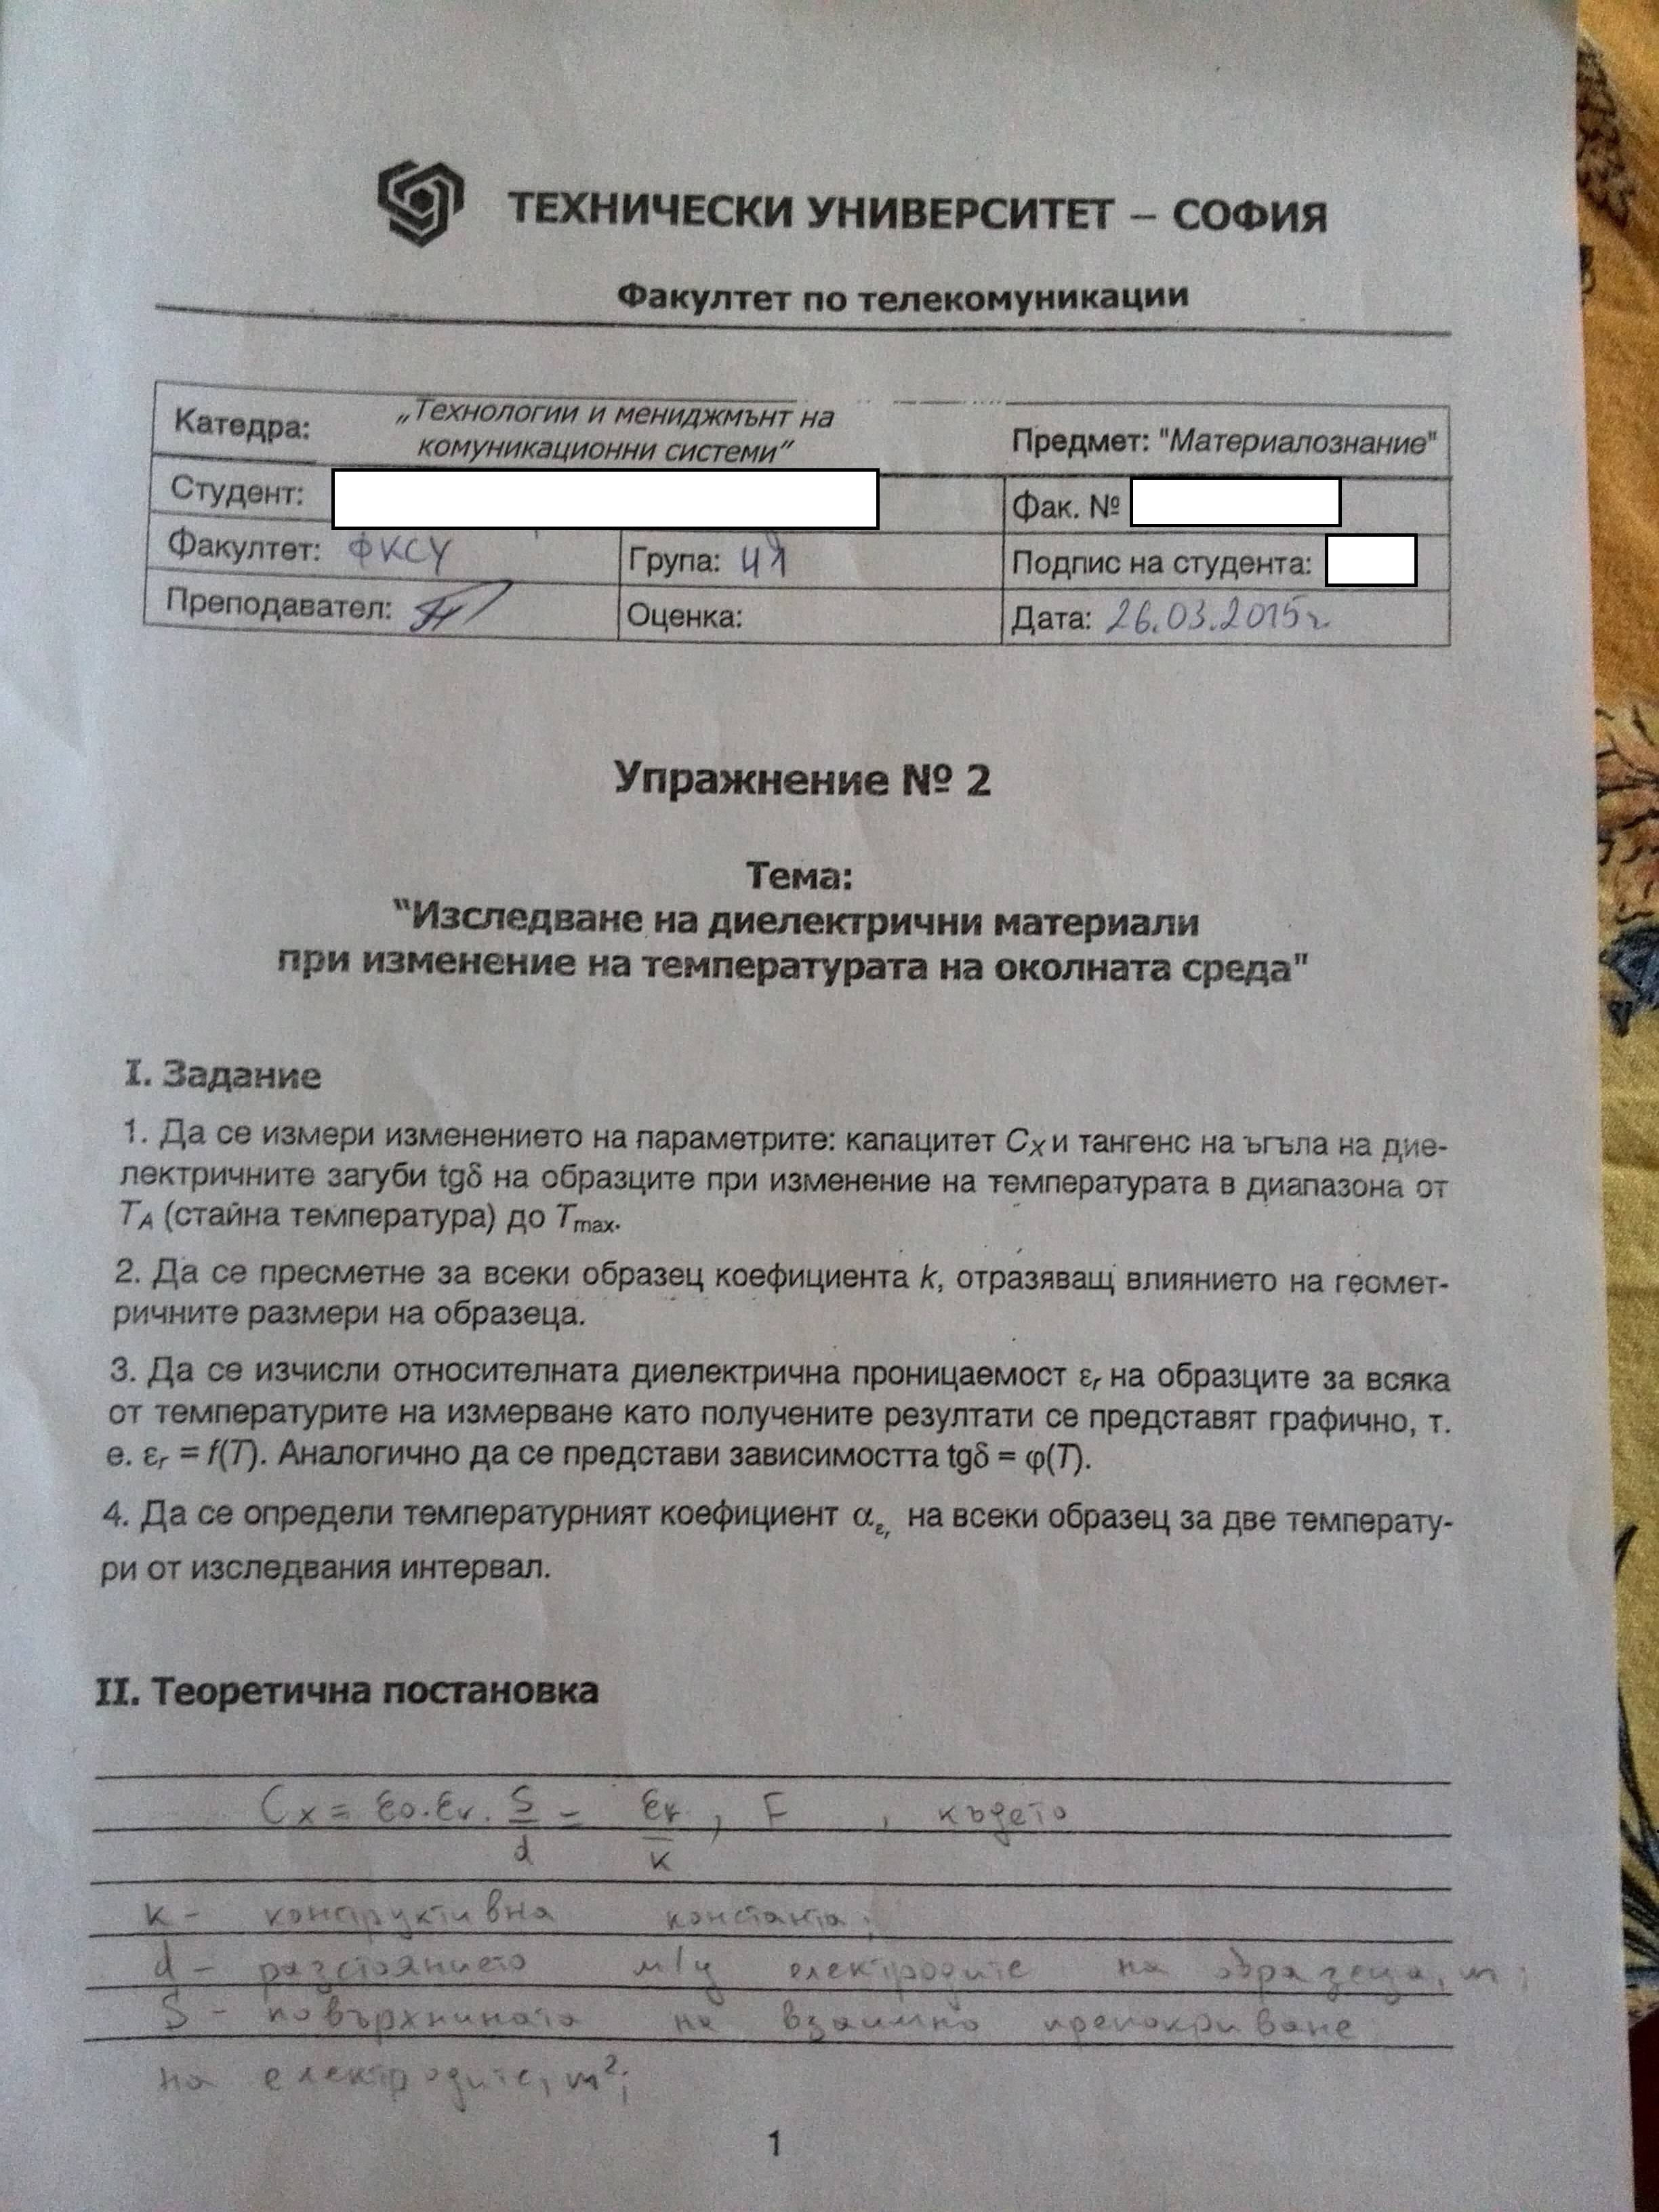 ТЕХНИЧЕСКИ УНИВЕРСИТЕТ – СОФИЯ
Факултет по телекомуникации
Катедра: „Технологии и мениджмънт на
комуникационни системи” Предмет: "Материалознание"
Студент: Фак. №
Факултет: ФКСУ Група: 41 Подпис на студента:
Преподавател: Оценка: Дата: 26.03.2015г.
Упражнение № 2
Тема:
"Изследване на диелектрични материали
при изменение на температурата на околната среда"
I. Задание
1. Да се измери изменението на параметрите: капацитет Cх и тангенс на ъгъла на дие-
лектричните загуби tgδ на образците при изменение на температурата в диапазона от
TA (стайна температура) до Tmax.
2. Да се пресметне за всеки образец коефициента k, отразяващ влиянието на геомет-
ричните размери на образеца.
3. Да се изчисли относителната диелектрична проницаемост εr на образците за всяка
от температурите на измерване като получените резултати се представят графично, т.
е. εr = f(T). Аналогично да се представи зависимостта tgδ = φ(T).
4. Да се определи температурният коефициент αεr на всеки образец за две температу-
ри от изследвания интервал.
II. Теоретична постановка
Cx = ε0.εr. S/d = εr/k , F , където
k - конструктивна константа;
d - разстоянието м/у електродите на образеца, m;
S - повърхнината на взаимно препокриване
на електродите, m²;
1